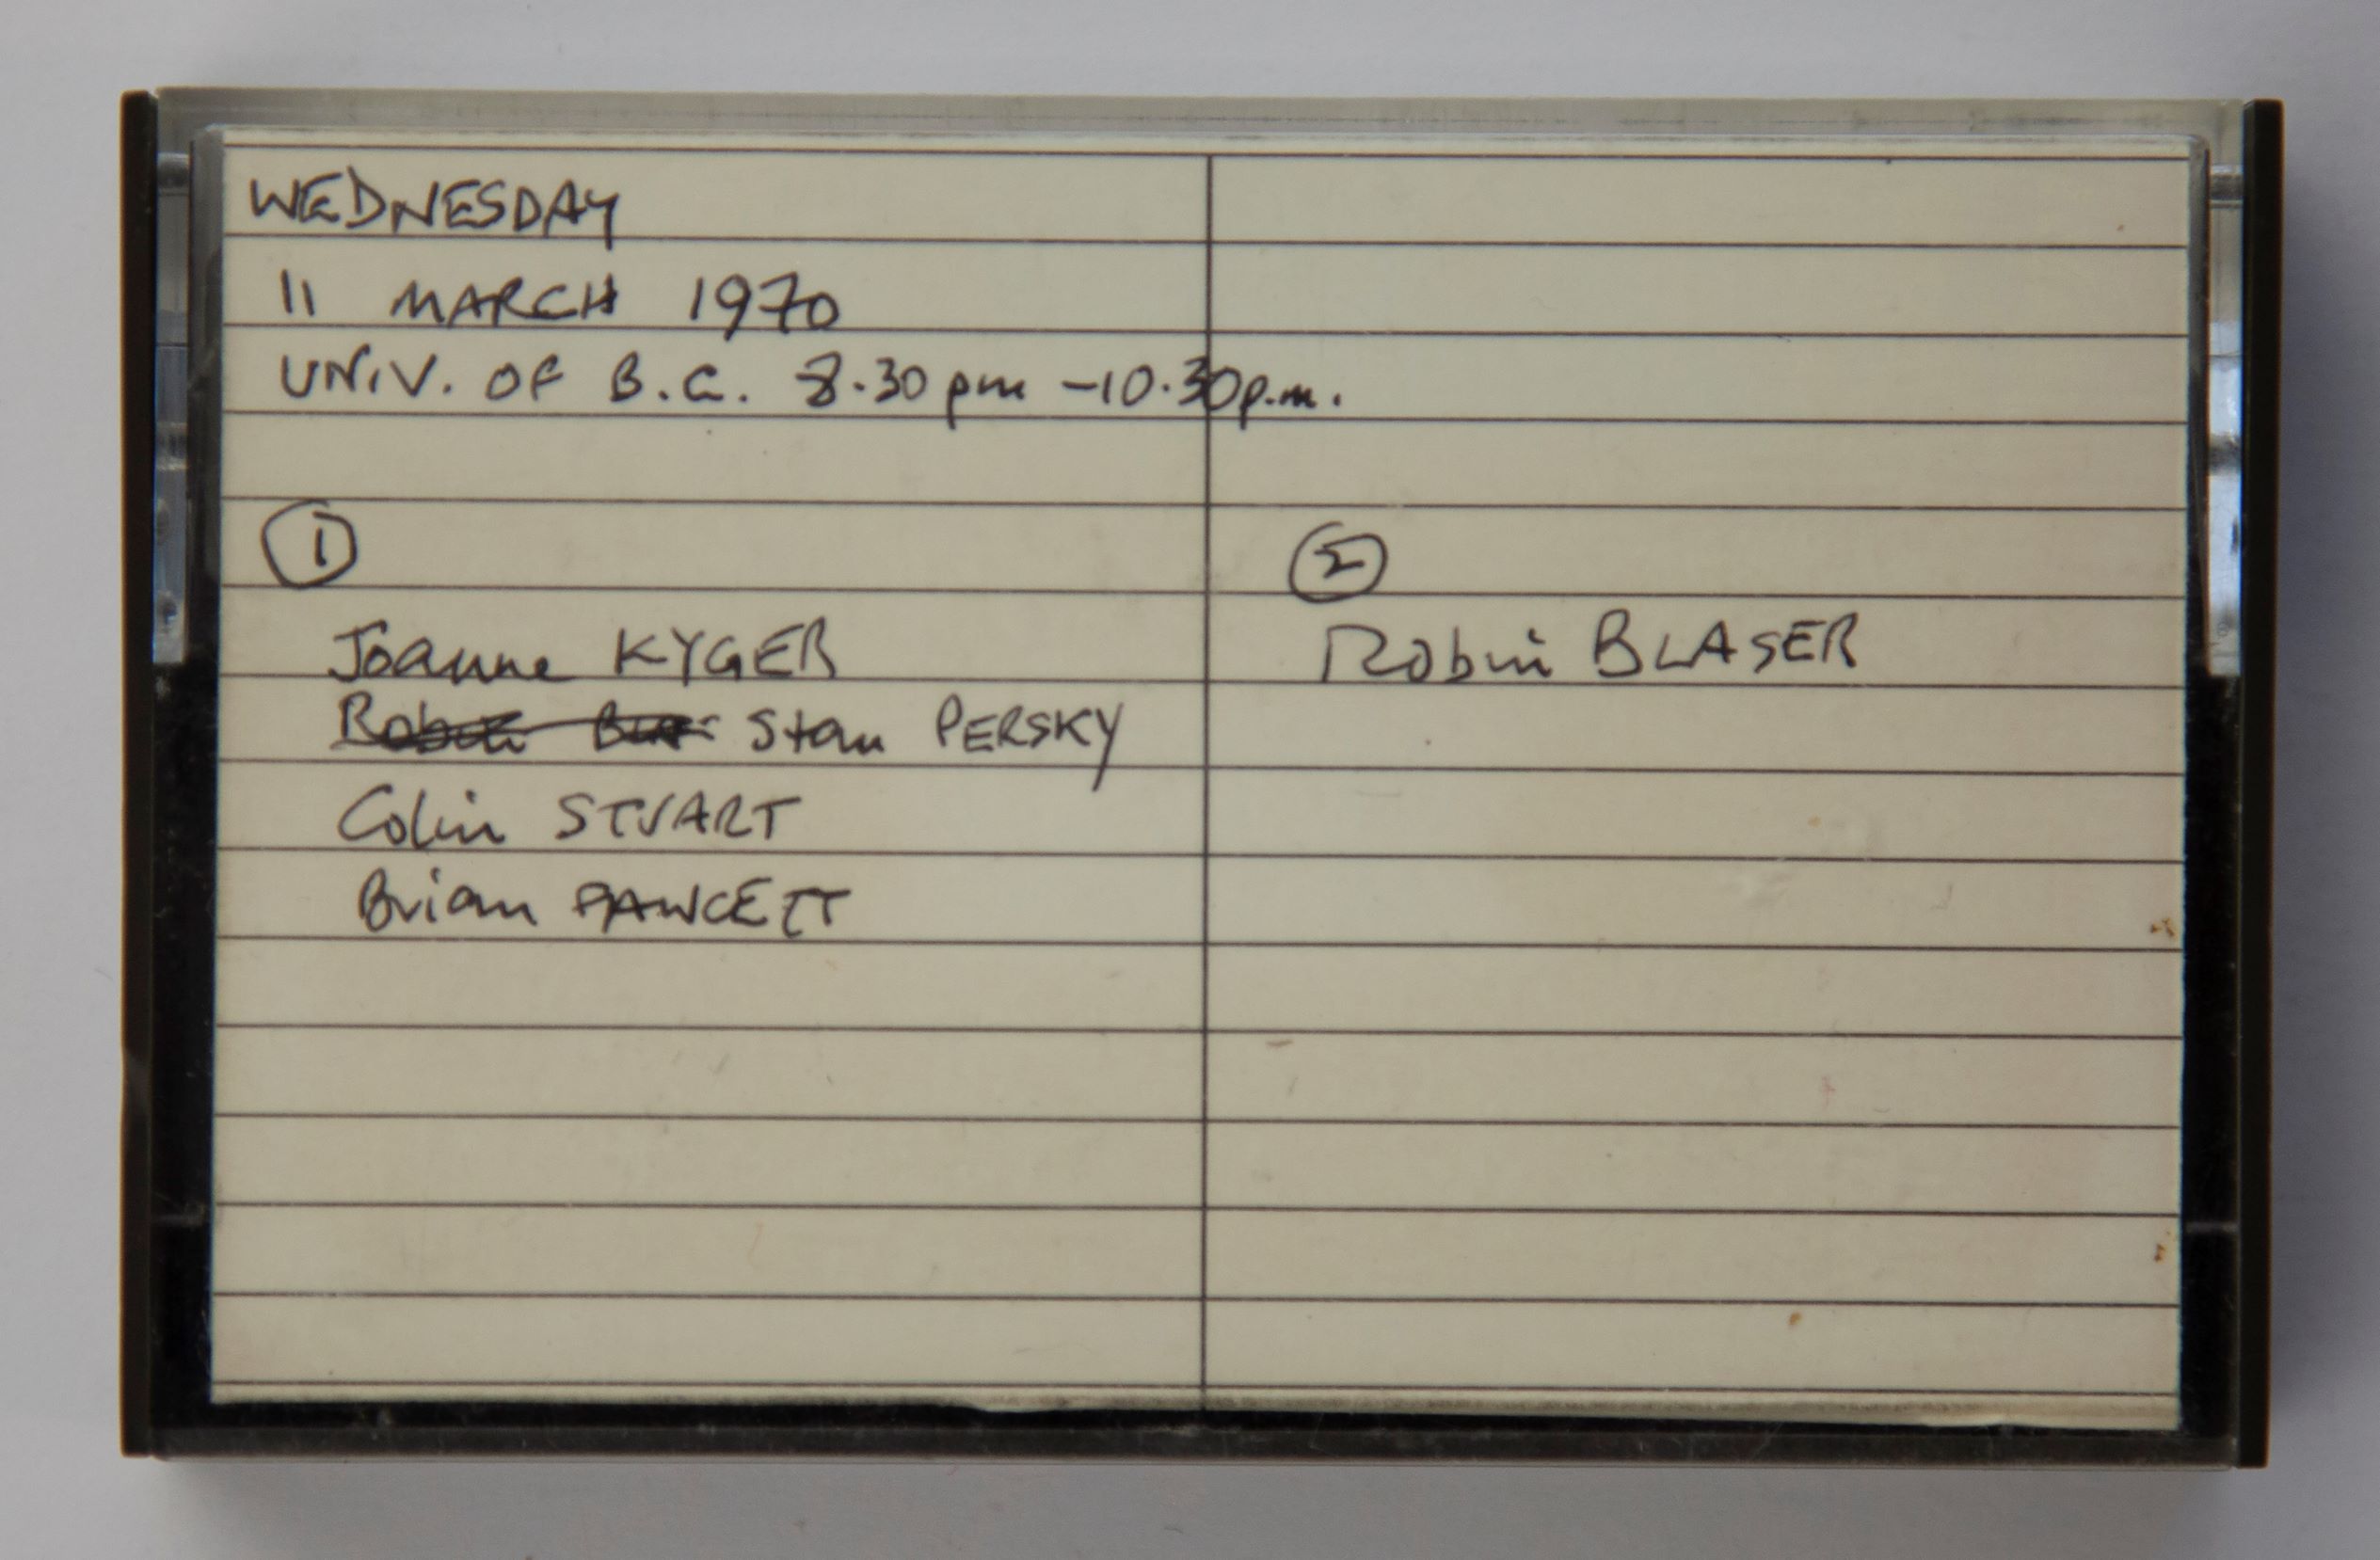 WEDNESDAY
11 MARCH 1970
UNIV. OF B.C. 8.30 pm - 10.30 p.m.
①
Joanne KYGER
Stan PERSKY
Colin STUART
Brian FAWCETT
②
Robin BLASER